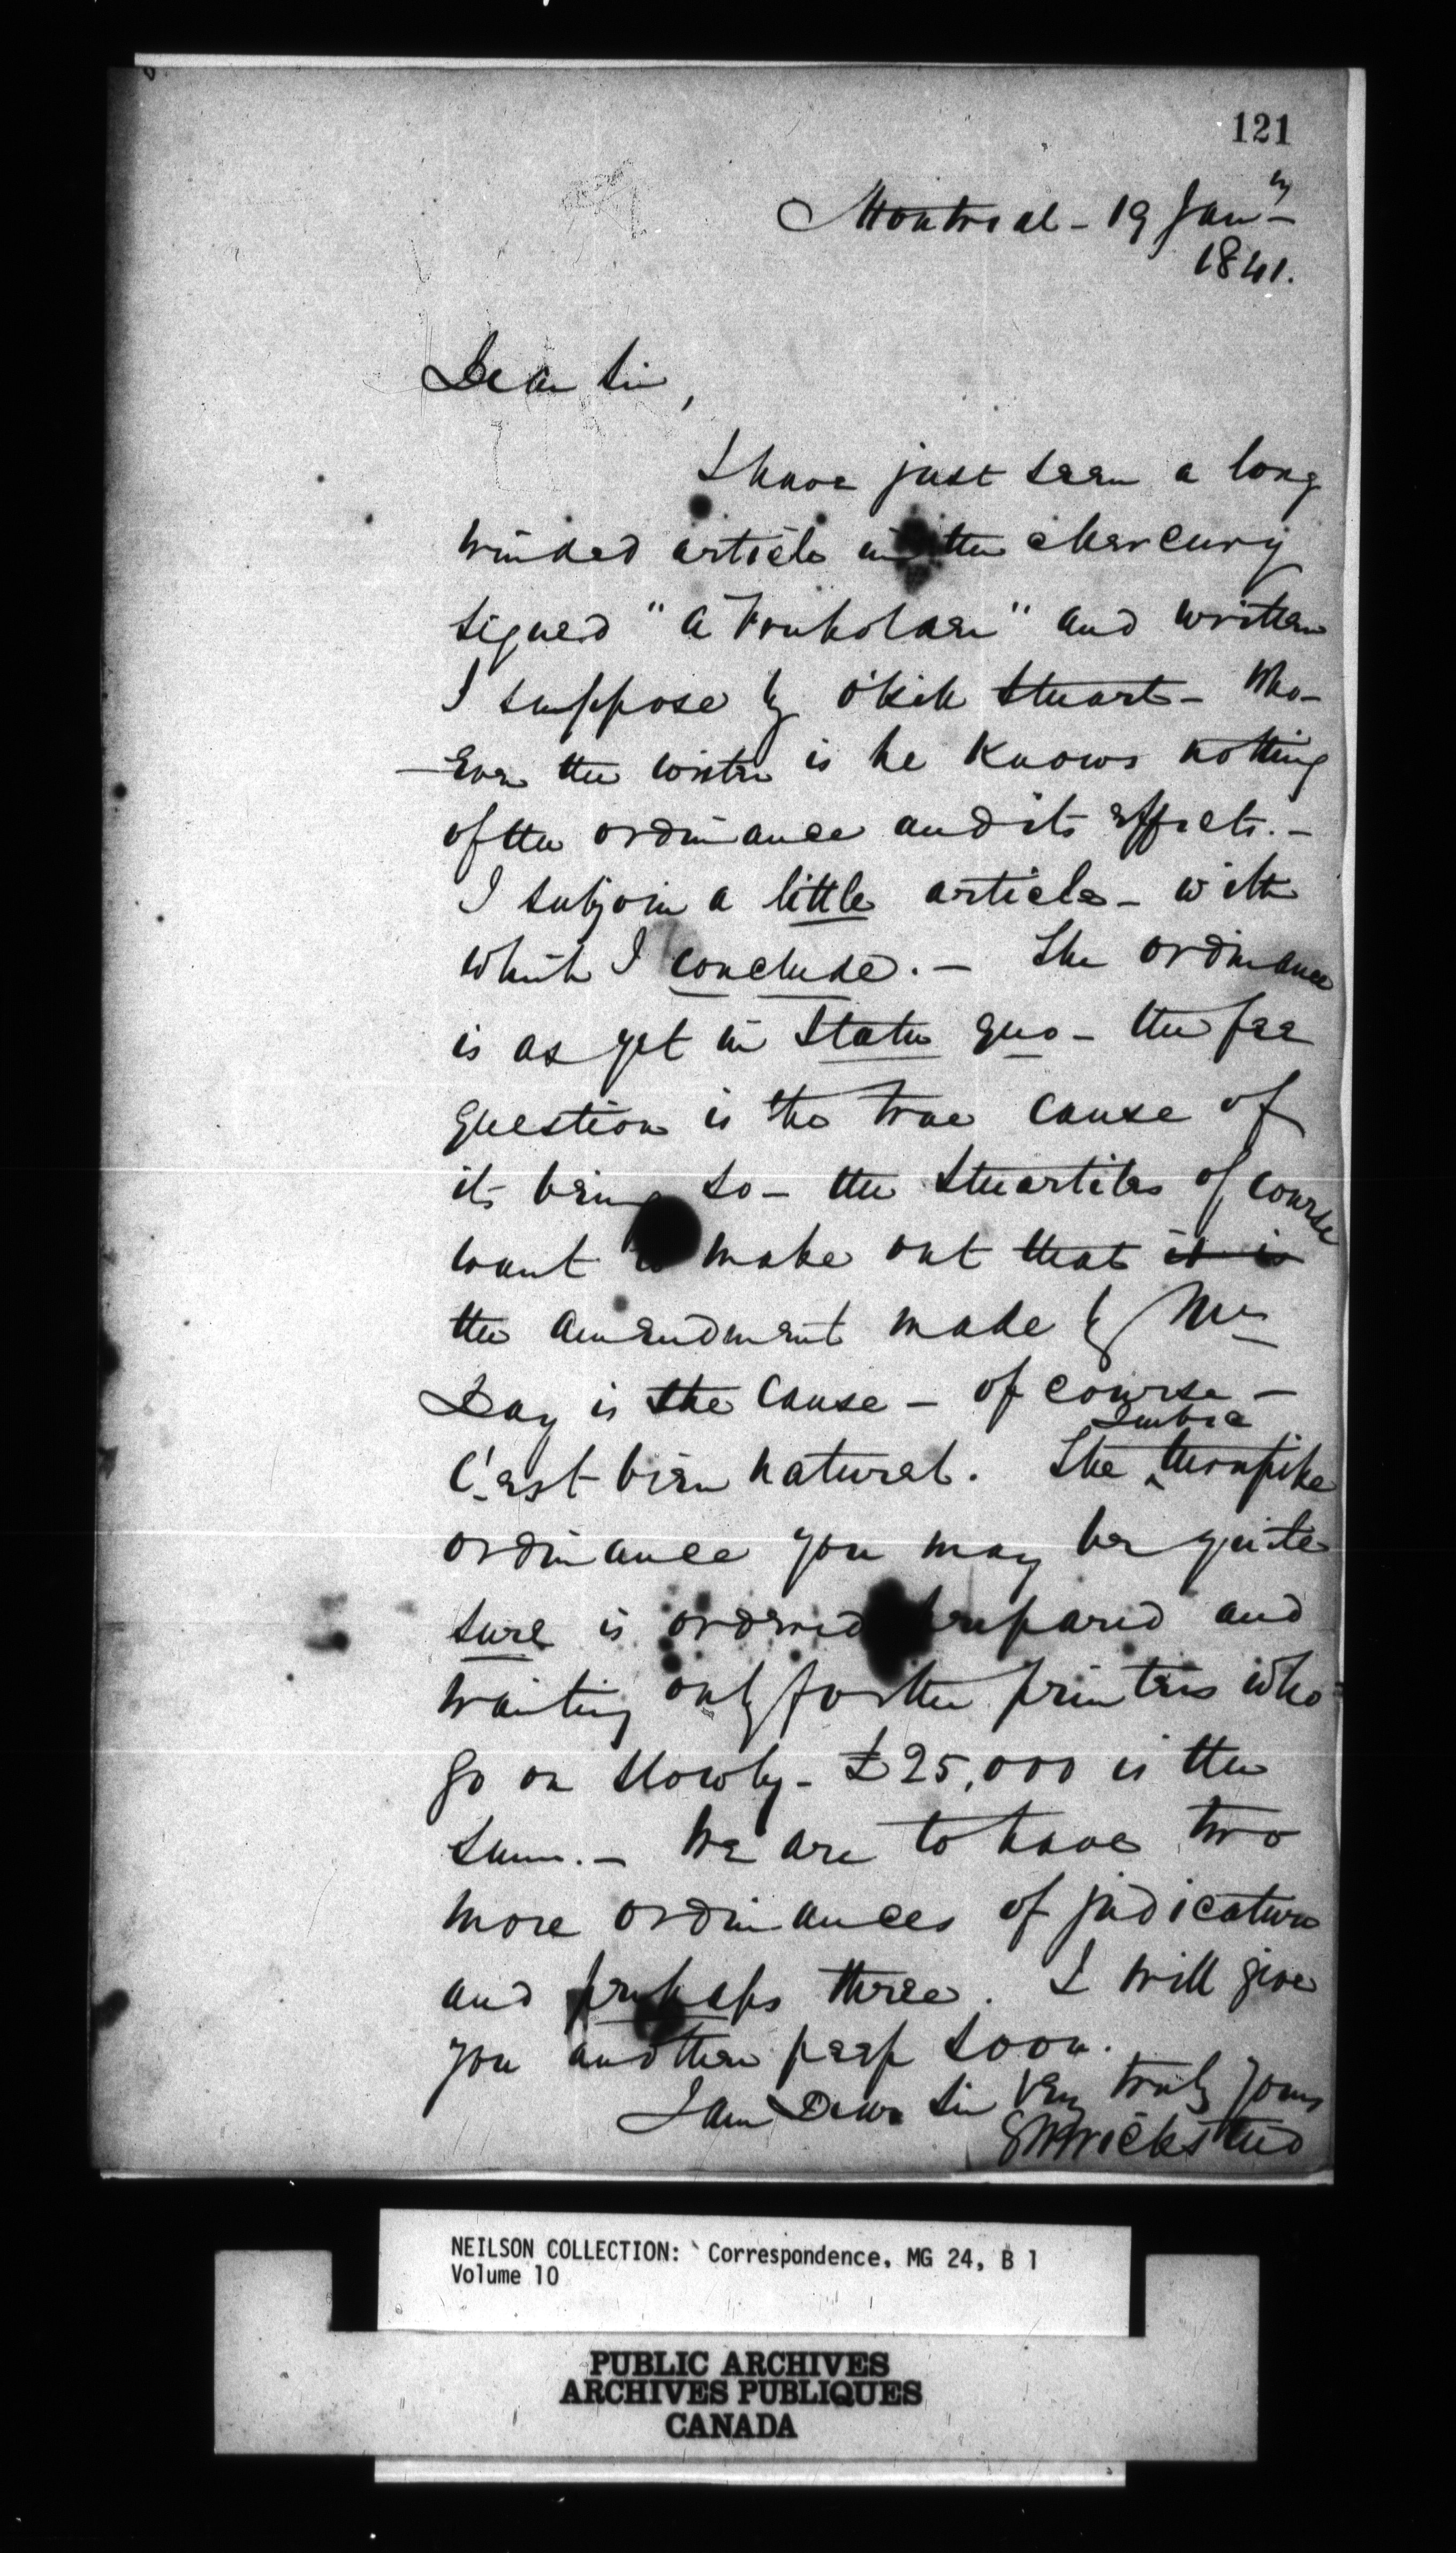 121
Montreal - 19 Jan^ry
1841.
Dear Sir,
I have just seen a long
winded article in the Mercury
signed "A Freeholder" and written
I suppose by O'Kill Stuart - Who-
-ever the writer is he knows nothing
of the ordinance and its effects. -
I subjoin a little article - with
which I conclude. - The ordinance
is as yet in Statu quo - the fee
question is the true cause of
its being so - the Stuartites of course
want to make out that it is
the amendment made by Mr
Day is the cause - of course -
C'est bien naturel. The Quebec turnpike
ordinance you may be quite
sure is ordered prepared and
waiting only for the printers who
go on slowly - £25,000 is the
sum. - We are to have two
more ordinances of judicature
and perhaps three. I will give
you another peep soon.
I am Dear Sir Very truly yours
G W Wicksteed
NEILSON COLLECTION: Correspondence, MG 24, B 1
Volume 10
PUBLIC ARCHIVES
ARCHIVES PUBLIQUES
CANADA